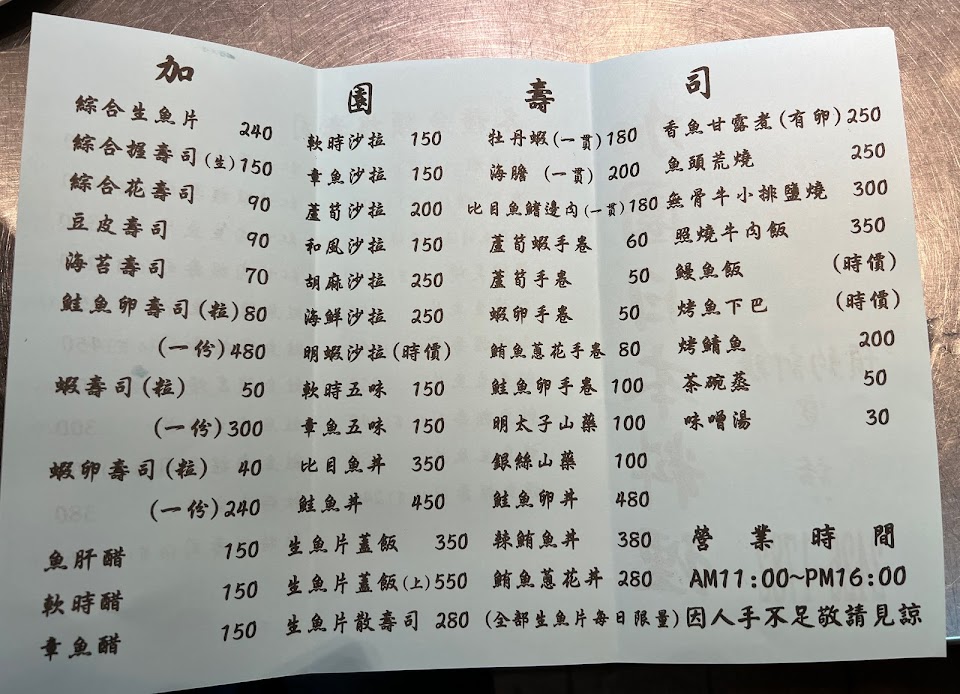 加園壽司
綜合生魚片 240
綜合握壽司(生)150
綜合花壽司 90
豆皮壽司 90
海苔壽司 70
鮭魚卵壽司(粒)80
(一份)480
蝦壽司(粒) 50
(一份)300
蝦卵壽司(粒) 40
(一份)240
魚肝醋 150
軟時醋 150
章魚醋 150
軟時沙拉 150
章魚沙拉 150
蘆荀沙拉 200
和風沙拉 150
胡麻沙拉 250
海鮮沙拉 250
明蝦沙拉(時價)
軟時五味 150
章魚五味 150
比目魚丼 350
鮭魚丼 450
生魚片蓋飯 350
生魚片蓋飯(上)550
生魚片散壽司 280
牡丹蝦(一貫)180
海膽 (一貫) 200
比目魚鰭邊肉(一貫)180
蘆荀蝦手卷 60
蘆荀手卷 50
蝦卵手卷 50
鮪魚蔥花手卷 80
鮭魚卵手卷 100
明太子山藥 100
銀絲山藥 100
鮭魚卵丼 480
辣鮪魚丼 380
鮪魚蔥花丼 280
(全部生魚片每日限量)
香魚甘露煮(有卵)250
魚頭荒燒 250
無骨牛小排鹽燒 300
照燒牛肉飯 350
鰻魚飯 (時價)
烤魚下巴 (時價)
烤鯖魚 200
茶碗蒸 50
味噌湯 30
營業時間
AM11:00~PM16:00
因人手不足敬請見諒